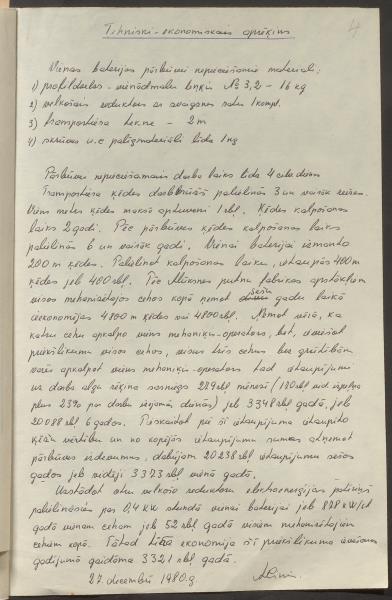 4
Tehniski-ekonomiskais aprēķins
Vienas baterijas pārbūvei nepieciešamie materiāli:
1) profildzelzs - vienādmalu leņķis № 3,2 - 16 kg
2) velkošais reduktors ar zvaigznes ratu 1 kompl.
3) transportiera tekne - 2 m
4) skrūves u.c palīgmateriāli līdz 1 kg
Pārbūvei nepieciešamais darba laiks līdz 4 cilv. dienām
Transportiera ķēdes darbmūžs palielinās 3 un vairāk reizes.
Viens metrs ķēdes maksā aptuveni 1 rbl. Ķēdes kalpošanas
laiks 2 gadi. Pēc pārbūves ķēdes kalpošanas laiks
palielinās 6 un vairāk gadi. Vienai baterijai izmanto
200 m ķēdes. Palielinot kalpošanas laiku, ietaupās 400 m
ķēdes jeb 400 rbl. Pēc putnu fabrikas apstākļiem
visos mehanizētajos cehos kopā ņemot sešu gadu laikā
ieekonomējas 4800 m ķēdes vai 4800 rbl. Ņemot vērā, ka
katru cehu apkalpo viens mehaniķis-operators, bet, ieviešot
priekšlikumu visos cehos, visus trīs cehus bez grūtībām
varēs apkalpot viens mehaniķis-operators tad ietaupījums
uz darba algu rēķina sasniegs 279 rbl mēnesī (180 rbl
plus 23% par darbu dienās) jeb 3348 rbl gadā, jeb
20088 rbl 6 gados. Pieskaitot pie šī ietaupījuma ietaupīto
ķēžu vērtību un no kopējās ietaupījumu summas atņemot
pārbūves izdevumus, dabūjam 20238 rbl ietaupījumu sešos
gados jeb vidēji 3373 rbl vienā gadā.
Uzstādot otru velkošo reduktoru elektroenerģijas patēriņš
palielināsies par 0,4 kW stundā vienai baterijai jeb 878 kW/st
gadā vienam ceham jeb 52 rbl gadā visiem mehanizētajiem
cehiem kopā. Tātad tīrā ekonomija šī priekšlikuma ieviešanas
gadījumā gaidāma 3321 rbl gadā.
27. decembrī 1980.g.